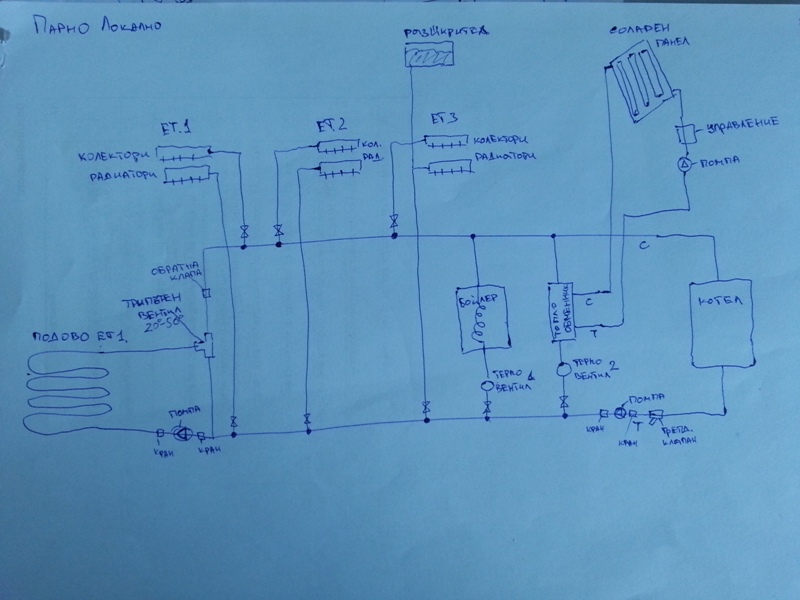 ПАРНО ЛОКАЛНО
РОЗШИРИТЕЛ
СОЛАРЕН
ПАНЕЛ
УПРАВЛЕНИЕ
ПОМПА
ЕТ.1
КОЛЕКТОРИ
РАДИАТОРИ
ЕТ.2
КОЛ.
РАД.
ЕТ3
КОЛЕКТОРИ
РАДИАТОРИ
С
ОБРАТНА
КЛАПА
ТРИПЪТЕН
ВЕНТИЛ
20°-50°
БОЙЛЕР
ТОПЛО
ОБМЕННИК
С
Т
КОТЕЛ
ПОДОВО ЕТ1.
ТЕРМО
ВЕНТИЛ 1
ТЕРМО
ВЕНТИЛ 2
ПОМПА
КРАН
КРАН
ПОМПА
КРАН
КРАН
Т
КЛАПАН